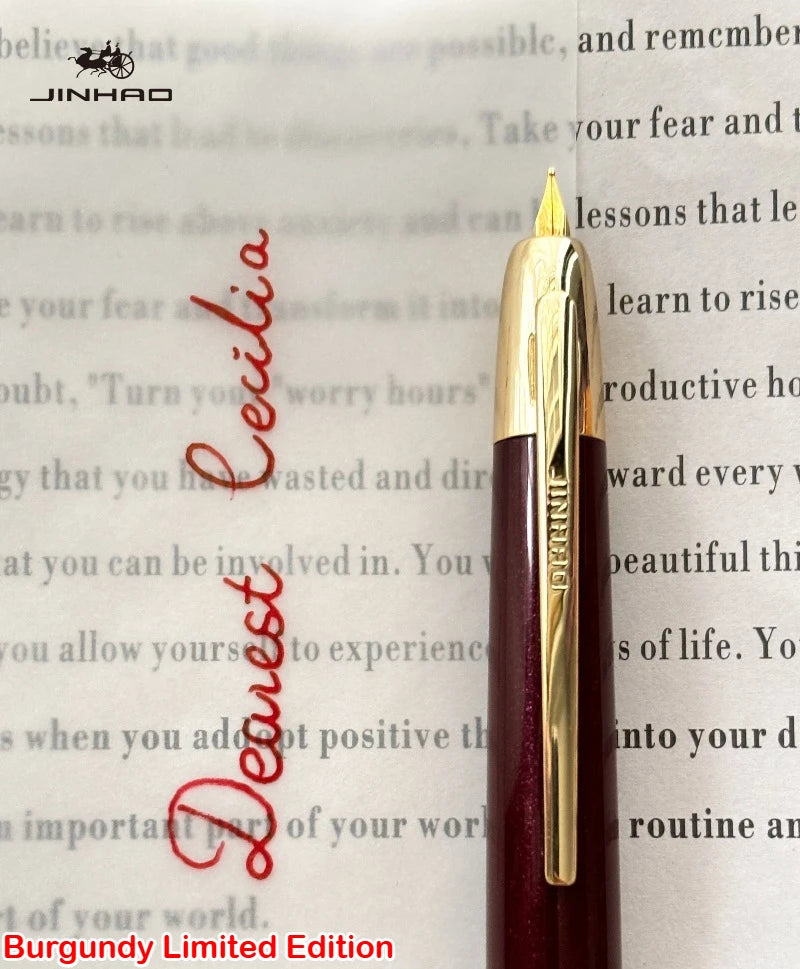 believe that good things are possible, and remember
JINHAO
essons that lead to discoveries. Take your fear and t
earn to rise above anxiety and can lessons that le
e your fear and transform it into learn to rise
oubt, "Turn your "worry hours" roductive ho
gy that you have wasted and dir ward every w
at you can be involved in. You w beautiful thi
you allow yourself to experience s of life. Yo
s when you addopt positive th into your d
n important part of your worl routine an
t of your world.
Dearest Cecilia
JINHAO
Burgundy Limited Edition